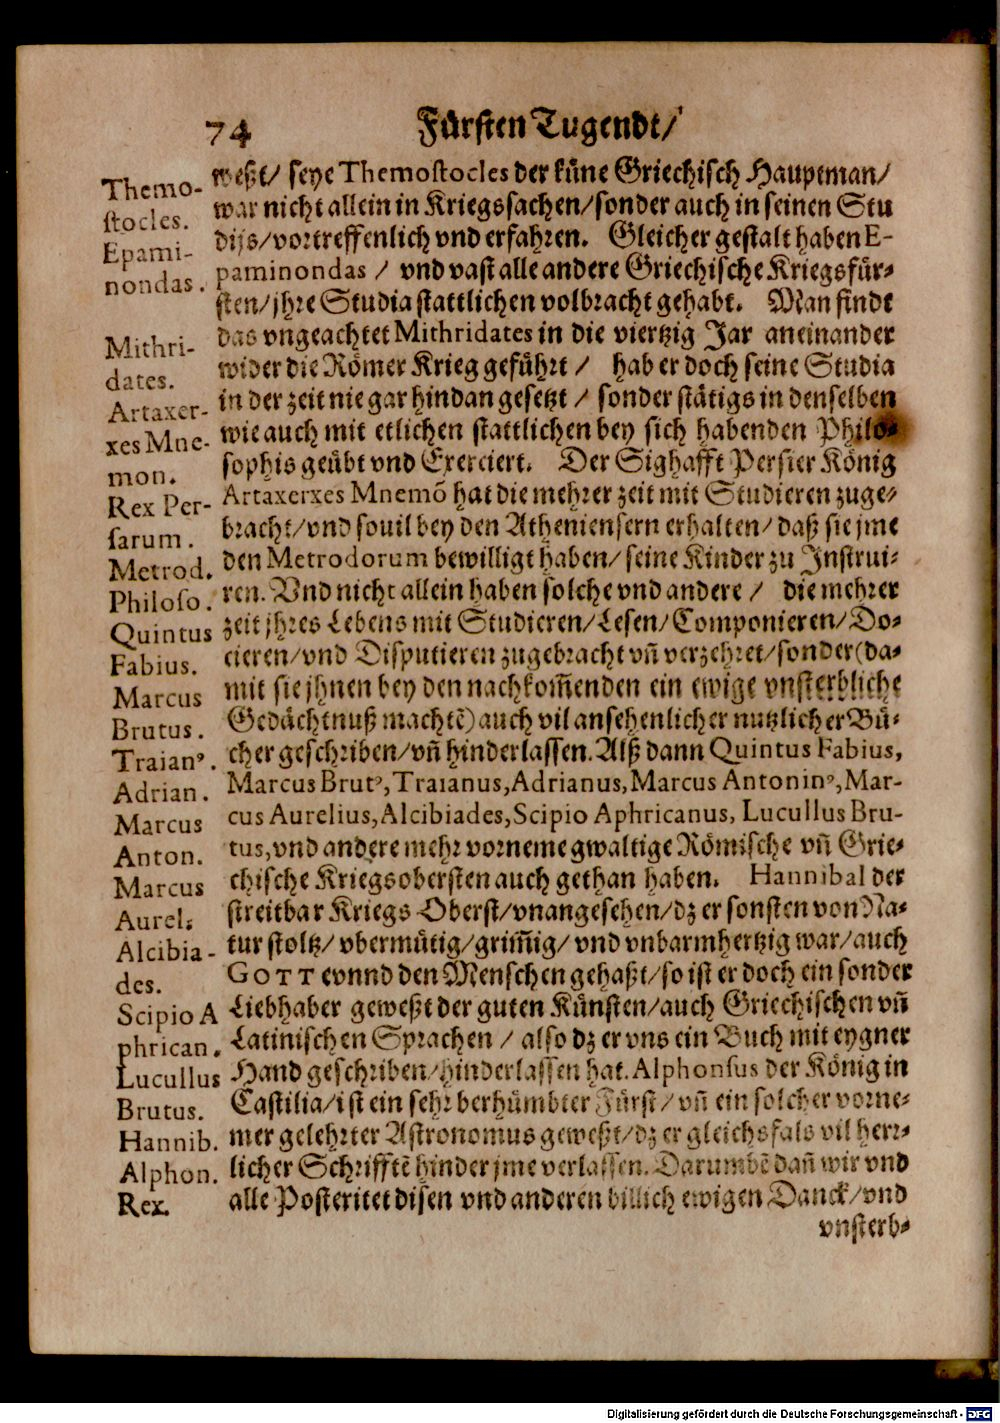 74
Fürsten Tugendt/
weßt/ seye Themostocles der küne Griechisch Hauptman/
war nicht allein in Kriegssachen/sonder auch in seinen Stu
dijs/vortreffenlich vnd erfahren. Gleicher gestalt haben E-
paminondas / vnd vast alle andere Griechische Kriegsfür-
sten/jhre Studia stattlichen volbracht gehabt. Man findt
das vngeachtet Mithridates in die viertzig Jar aneinander
wider die Römer Krieg geführt / hab er doch seine Studia
in der zeit nie gar hindan gesetzt / sonder stätigs in denselben
wie auch mit etlichen stattlichen bey sich habenden Philo-
sophis geübt vnd Exerciert. Der Sighafft Persier König
Artaxerxes Mnemõ hat die mehrer zeit mit Studieren zuge-
bracht/vnd souil bey den Atheniensern erhalten/ daß sie jme
den Metrodorum bewilligt haben/ seine Kinder zu Instrui-
ren. Vnd nicht allein haben solche vnd andere / die mehrer
zeit jhres Lebens mit Studieren/Lesen/Componieren/Do-
cieren/vnd Disputieren zugebracht vñ verzehret/sonder(da-
mit sie jhnen bey den nachkom̃enden ein ewige vnsterbliche
Gedächtnuß machtẽ) auch vil ansehenlicher nutzlicher Bü-
cher geschriben/vñ hinderlassen. Alß dann Quintus Fabius,
Marcus Brutꝰ, Traianus, Adrianus, Marcus Antoninꝰ, Mar-
cus Aurelius, Alcibiades, Scipio Aphricanus, Lucullus Bru-
tus, vnd andere mehr vorneme gwaltige Römische vñ Grie-
chische Kriegsobersten auch gethan haben. Hannibal der
streitbar Kriegs Oberst/vnangesehen/dz er sonsten von Na-
tur stoltz/ vbermütig/grim̃ig/ vnd vnbarmhertzig war/auch
GOTT evnnd den Menschen gehaßt/so ist er doch ein sonder
Liebhaber geweßt der guten Künsten/auch Griechischen vñ
Latinischen Sprachen / also dz er vns ein Buch mit eygner
Hand geschriben/hinderlassen hat. Alphonsus der König in
Castilia/ist ein sehr berhümbter Fürst/ vñ ein solcher vorne-
mer gelehrter Astronomus geweßt/dz er gleichsfals vil herr-
licher Schrifftẽ hinder jme verlassen. Darumbẽ dañ wir vnd
alle Posteritet disen vnd anderen billich ewigen Danck/vnd
vnsterb-
Themo-
stocles.
Epami-
nondas.
Mithri-
dates.
Artaxer-
xes Mne-
mon.
Rex Per-
sarum.
Metrod.
Philoso.
Quintus
Fabius.
Marcus
Brutus.
Traianꝰ.
Adrian.
Marcus
Anton.
Marcus
Aurel:
Alcibia-
des.
Scipio A
phrican.
Lucullus
Brutus.
Hannib.
Alphon.
Rex.
Digitalisierung gefördert durch die Deutsche Forschungsgemeinschaft - DFG